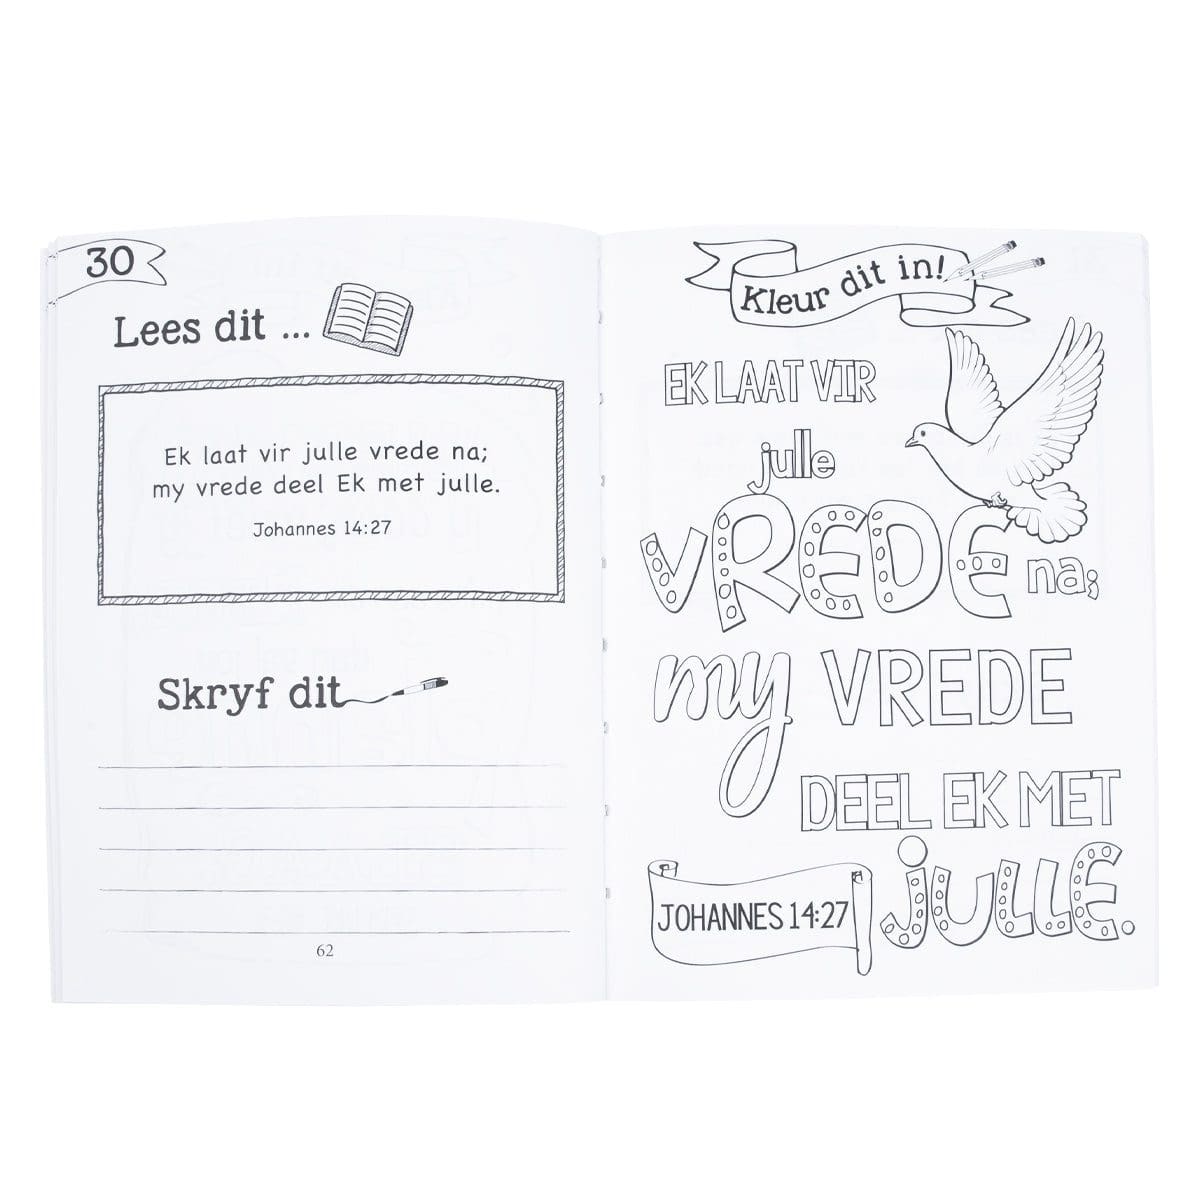 30
Lees dit ...
Ek laat vir julle vrede na;
my vrede deel Ek met julle.
Johannes 14:27
Skryf dit
62
Kleur dit in!
EK LAAT VIR
julle
VREDE na;
my VREDE
DEEL EK MET
JULLE.
JOHANNES 14:27